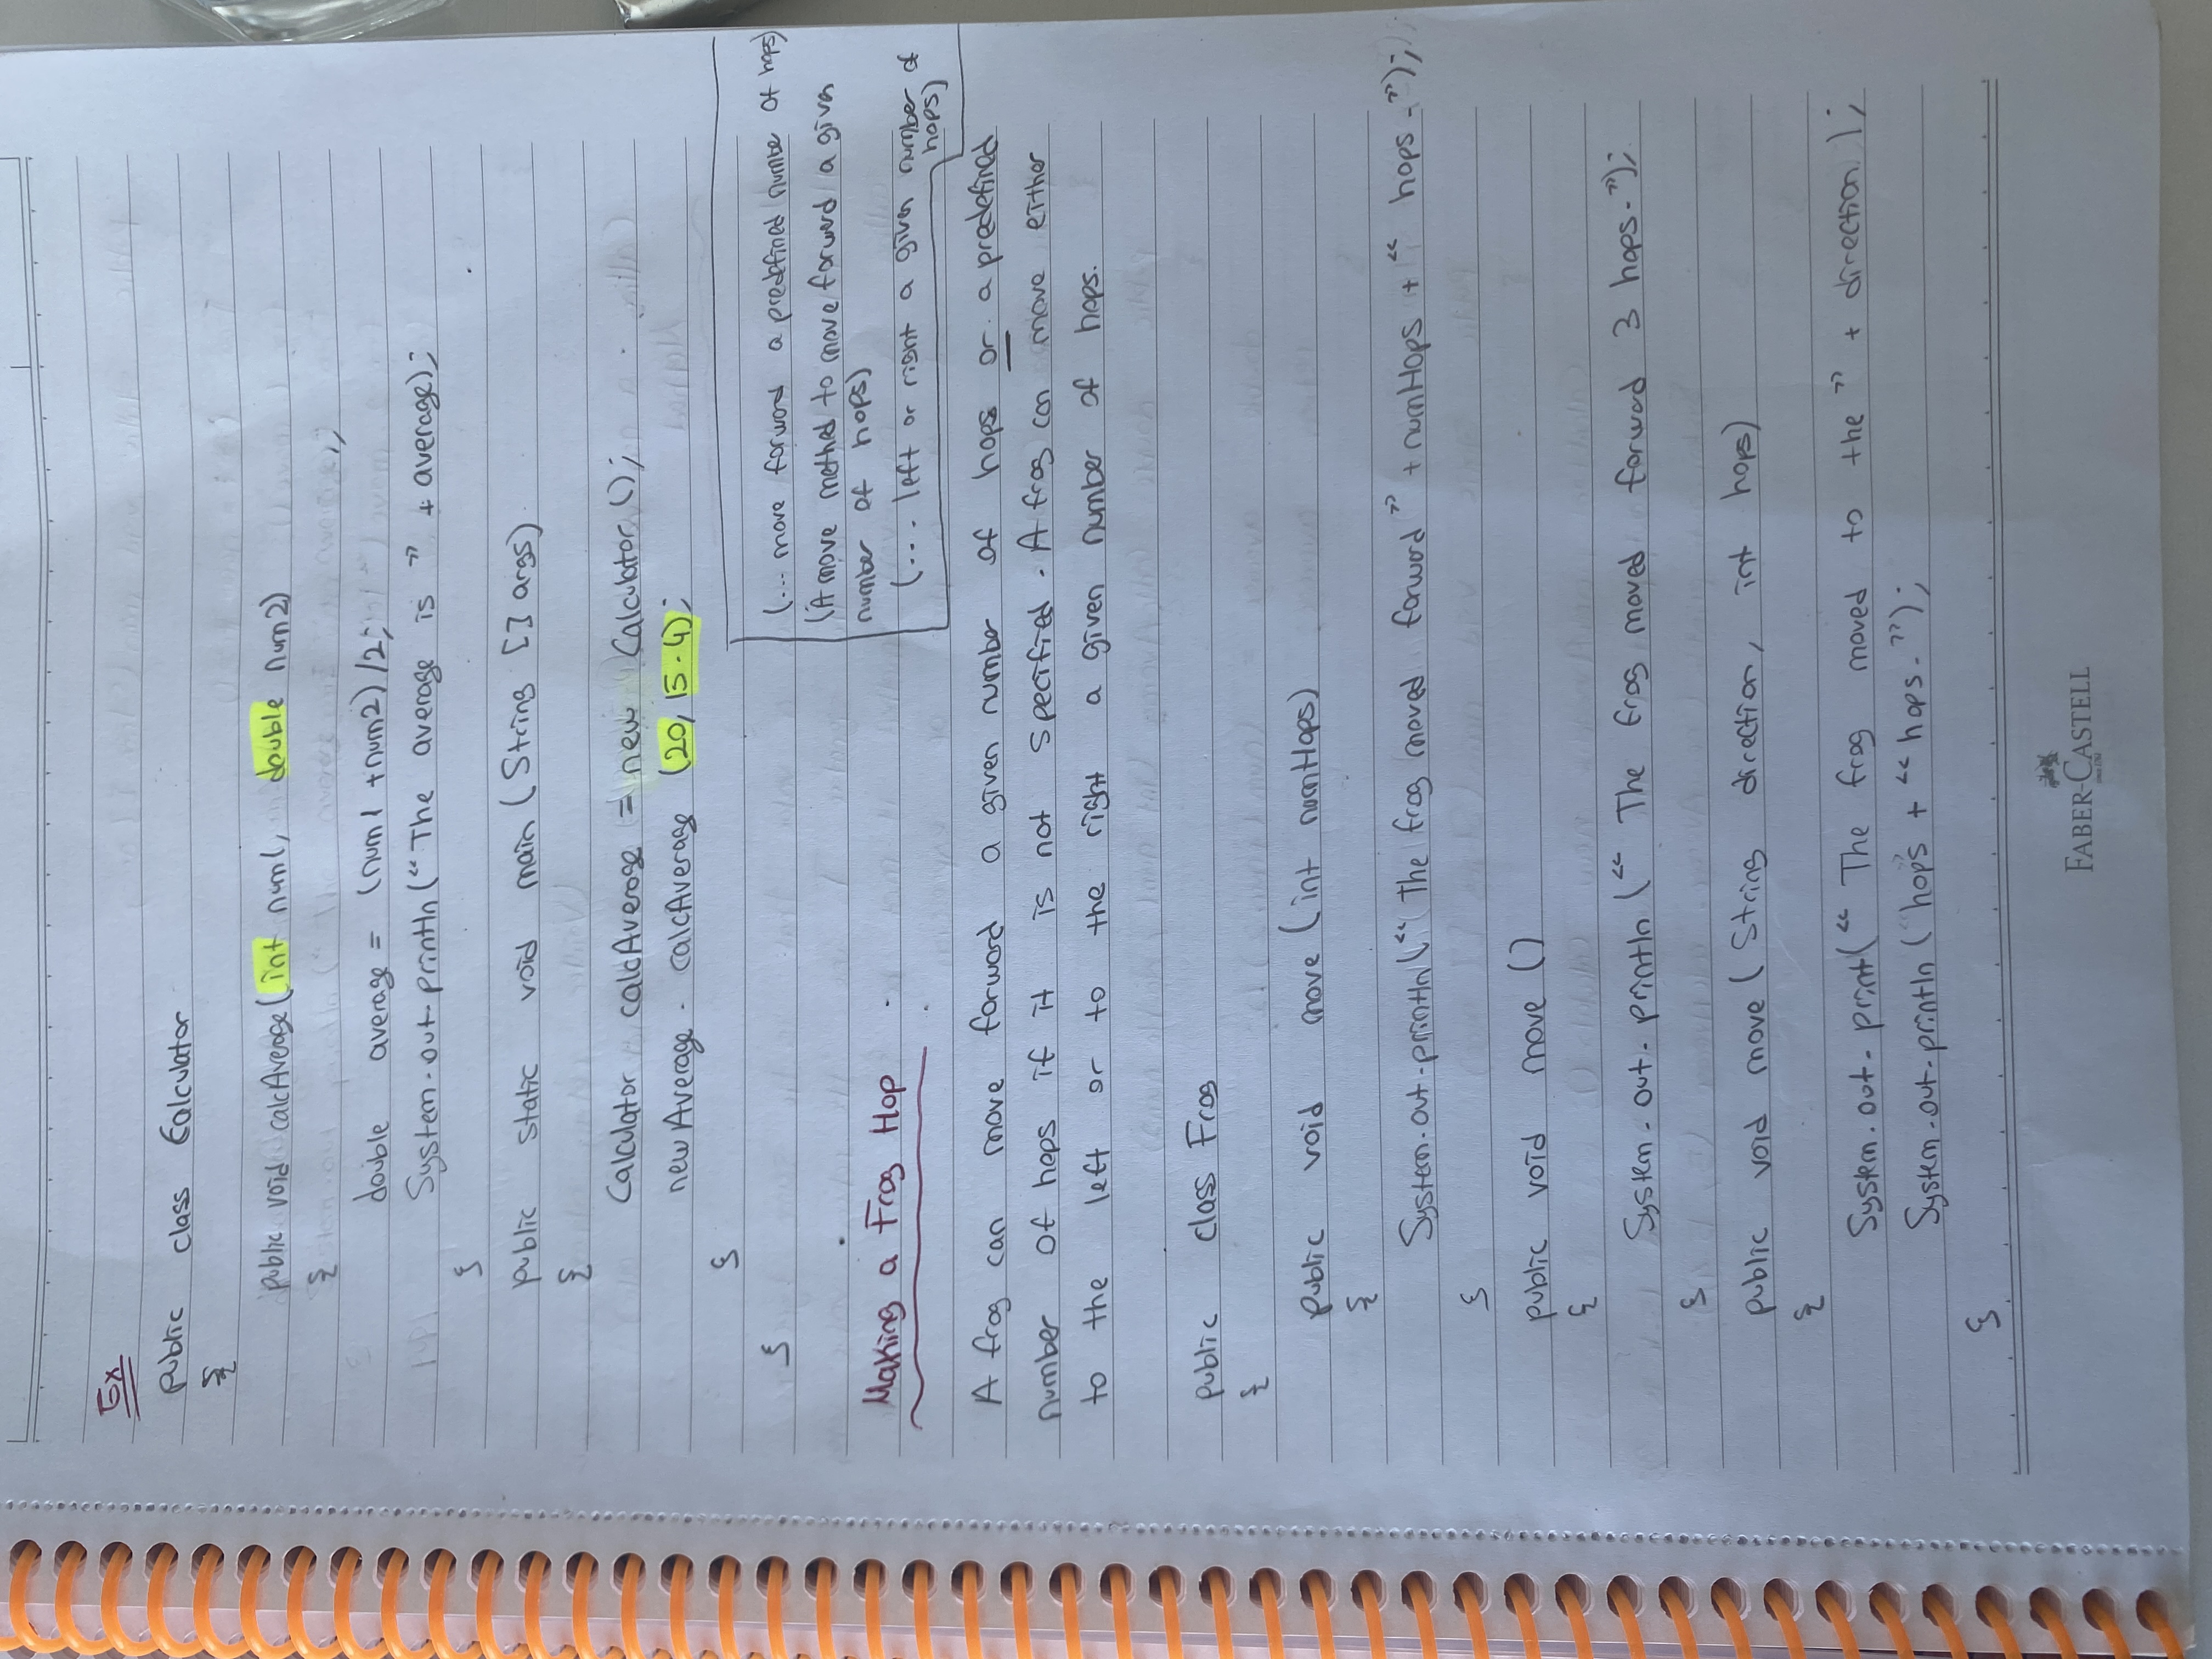 Ex
public class Calculator
{
public void calcAverage(int num1, double num2)
{
double average = (num1 +num2) /2;
System.out.println(“The average is ” + average);
}
public static void main (String [] args)
{
Calculator calcAverage = new Calculator ();
newAverage. calcAverage (20, 15.4);
}
}
(... move forward a predefined number of hops)
(A move method to move forward a given
number of hops)
(... left or right a given number of
hops)
Making a Frog Hop
A frog can move forward a given number of hops or a predefined
number of hops if it is not specified. A frog can move either
to the left or to the right a given number of hops.
public class Frog
{
public void move (int numHops)
{
System.out.println(“The frog moved forward” + numHops + “ hops.”);
}
public void move ()
{
System.out.println (“ The frog moved forward 3 hops.”);
}
public void move (String direction, int hops)
{
System.out.print(“ The frog moved to the ” + direction );
System.out.println (“hops + “ hops.”);
}
FABER-CASTELL
since 1761